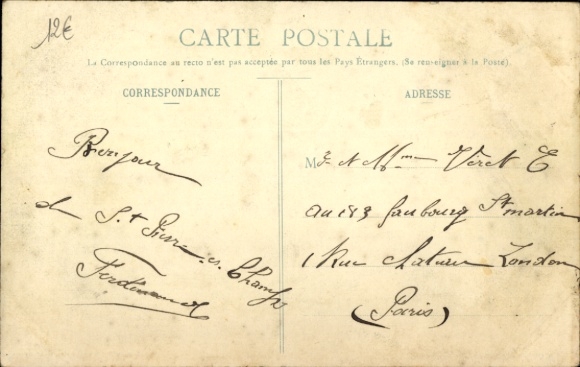 12€
CARTE POSTALE
La Correspondance au recto n'est pas acceptée par tous les Pays Étrangers. (Se renseigner à la Poste).
CORRESPONDANCE
ADRESSE
Bonjour
de St Pierre es Champs
Ferdinand
Mr et Mme Véret E
au 183 faubourg St martin
1 Rue Chateau Londou
(Paris)